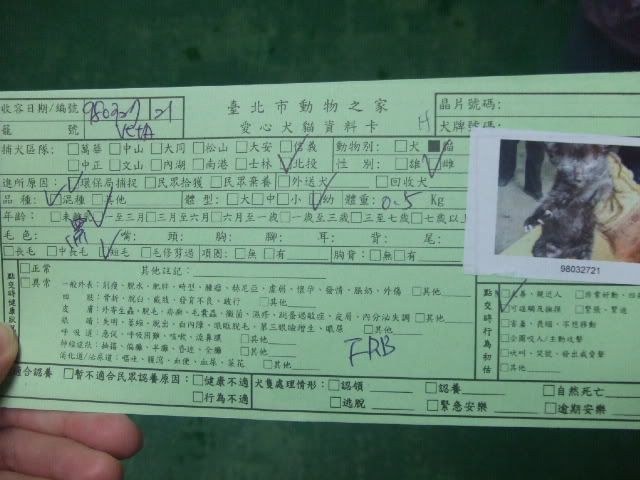 收容日期/編號 980327 21 臺北市動物之家 晶片號碼:
籠 號 VetA 愛心犬貓資料卡 H 犬牌號碼:
捕犬區隊: □萬華 □中山 □大同 □松山 □大安 □信義 動物別: □犬 ■貓
□中正 □文山 □內湖 □南港 □士林 □北投 性 別: □雄 □雌
進所原因: □環保局捕捉 □民眾拾獲 □民眾棄養 □外送犬 □回收犬
品 種: □混種 □其他 體 型: □大 □中 □小 □幼 體重: 0.5 Kg
年齡: □未離乳 □一至三月 □三月至六月 □六月至一歲 □一歲至三歲 □三至七歲 □七歲以上
毛色: 黑 嘴: 頭: 胸: 腳: 耳: 背: 尾:
□長毛 □中長毛 □短毛 □毛修剪過 項圈: □無 □有 胸背: □無 □有
98032721
點交時健康狀況 □正常 其他註記:
□異常 一般外表: 削瘦、脫水、肥胖、畸型、腫瘤、林尼亞、虛弱、懷孕、發情、脹奶、外傷 □其他
四 肢: 骨折、脫臼、截肢、發育不良、跛行 □其他
皮 膚: 外寄生蟲、脫毛、疥癬、毛囊蟲、黴菌、濕疹、跳蚤過敏症、皮屑、內分泌失調 □其他
眼 睛: 失明、萎縮、脫出、白內障、眼瞼脫毛、第三眼瞼增生、眼屎 □其他
呼吸道: 急促、呼吸困難、咳嗽、流鼻膿 □其他
神經症狀: 抽搐、偏癱、半癱、昏迷、全癱 □其他
消化道/泌尿道: 嘔吐、腹瀉、血便、血尿、菜花 □其他
FRB
點交時行為初估 □友善、親近人
□可碰觸及撫摸 □緊張、緊迫
□害羞、畏縮、不想移動
□公開咬人/主動攻擊
□吠叫、哭號、發出威脅聲
□其他
適合認養 □暫不適合民眾認養原因: □健康不適 犬隻處理情形: □認領 □認養 □自然死亡
□行為不適 □逃脫 □緊急安樂 □逾期安樂